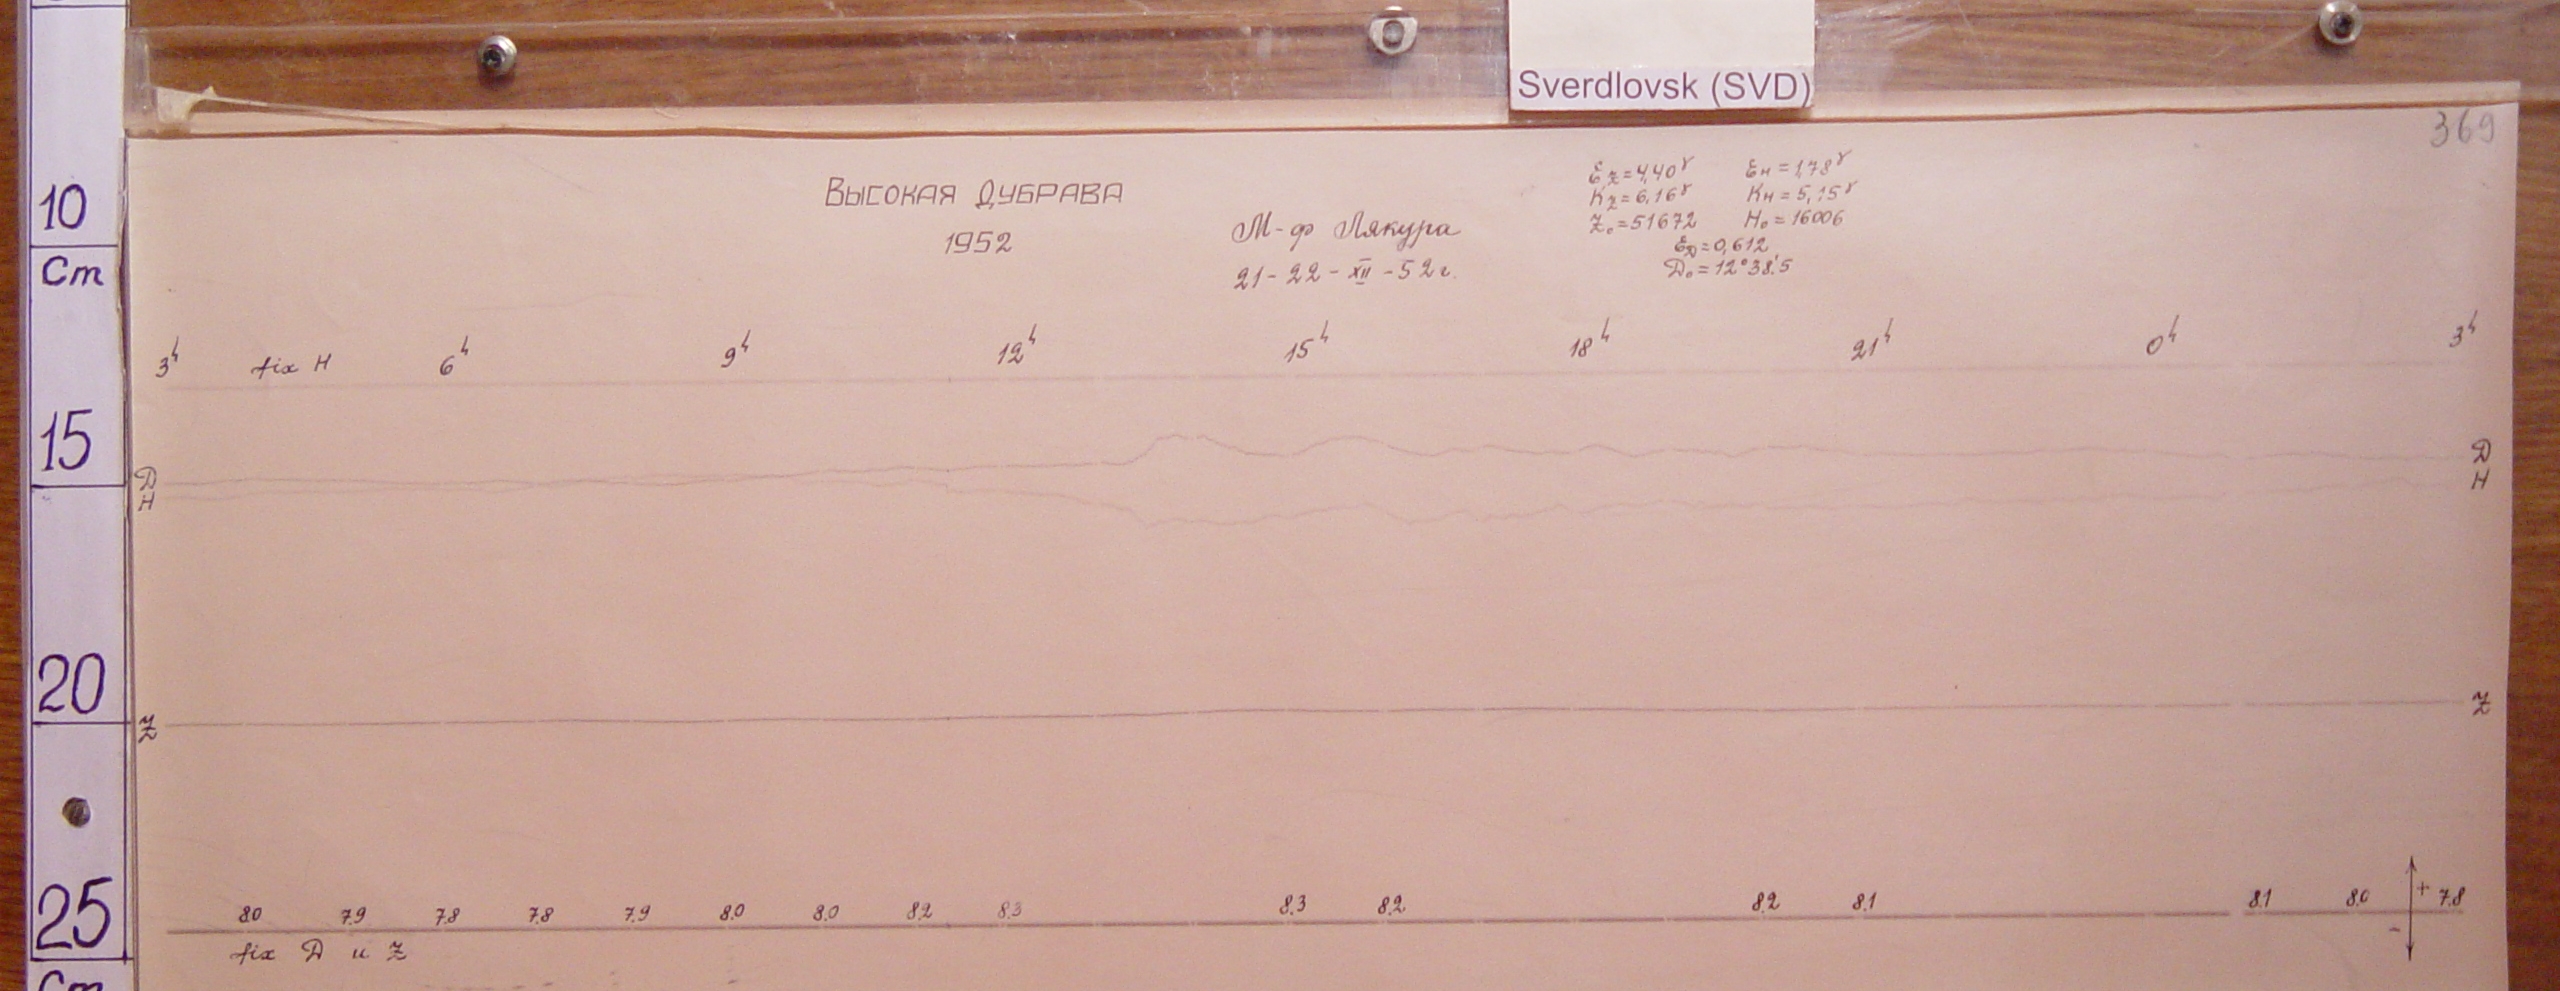 Sverdlovsk (SVD)
369
10
Cm
15
20
25
Cm
Высокая Дубрава
1952
М-ф Лякура
21-22-XII-52 г.
Ez=4,40γ Eн=1,78γ
Kz=6,16γ Kн=5,15γ
Z₀=51672 H₀=16006
ED=0,612
D₀=12°38'.5
3h fix H 6h 9h 12h 15h 18h 21h 0h 3h
Д Д
H H
Z Z
8.0 7.9 7.8 7.8 7.9 8.0 8.0 8.2 8.3 8.3 8.2 8.2 8.1 8.1 8.0 + 7.8
−
fix Д и Z